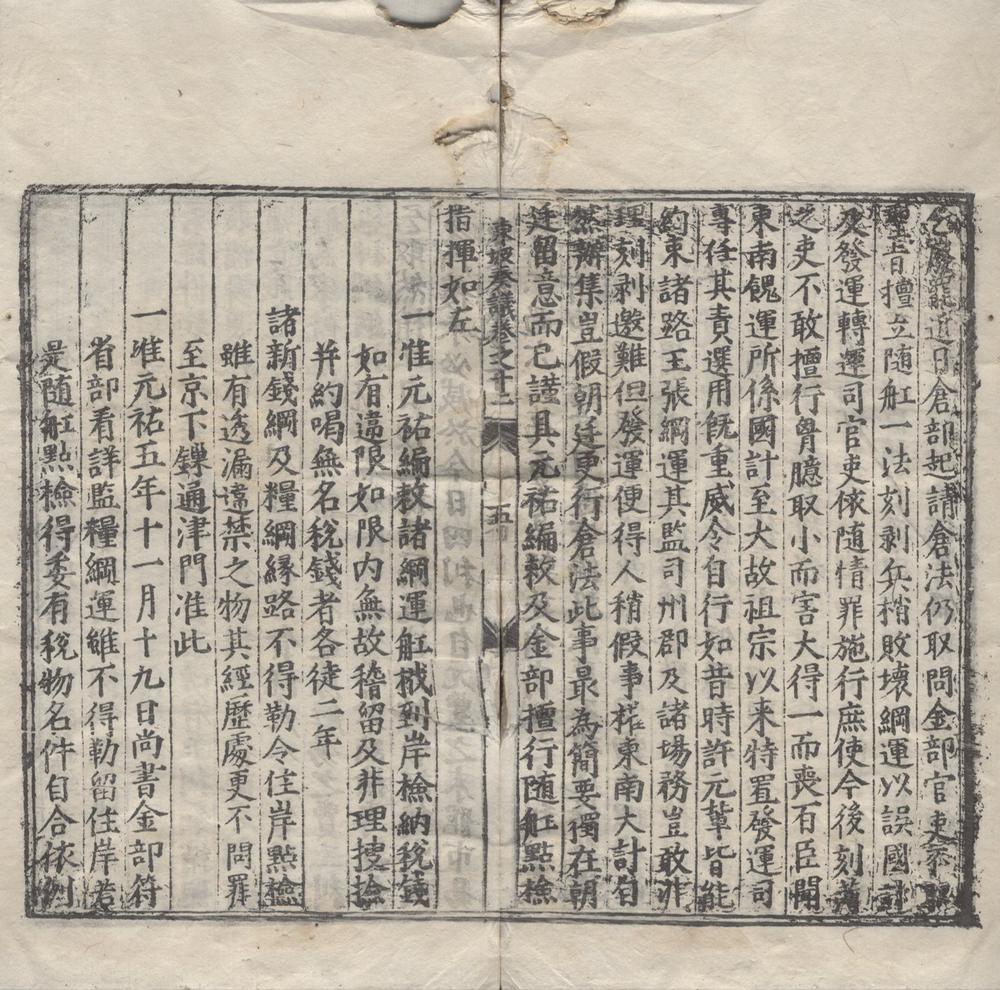 乞廢罷近日倉部起請倉法仍取問金部官吏不取
聖旨擅立随舡一法刻剥兵梢敗壞綱運以誤國計
及發運轉運司官吏依随情罪施行庶使今後刻薄
之吏不敢擅行胷臆取小而害大得一而喪百臣聞
東南餽運所係國計至大故祖宗以来特置發運司
專任其責選用旣重威令自行如昔時許元軰皆能
約束諸路主張綱運其監司州郡及諸場務豈敢非
理刻剥邀難但發運使得人稍假事權東南大計自
然辦集豈假朝廷更行倉法此事最為簡要獨在朝
廷留意而已謹具元祐編敕及金部擅行随舡點檢
東坡奏議卷之十二 五
指揮如左
一准元祐編敕諸綱運舡栰到岸檢納稅錢
如有違限如限内無故稽留及非理搜撿
并約喝無名稅錢者各徒二年
諸新錢綱及糧綱緣路不得勒令住岸點檢
雖有透漏違禁之物其經歷處更不問罪
至京下鏁通津門准此
一准元祐五年十一月十九日尚書金部符
省部看詳監糧綱運雖不得勒留住岸若
是随舡點檢得委有稅物名件自合依例